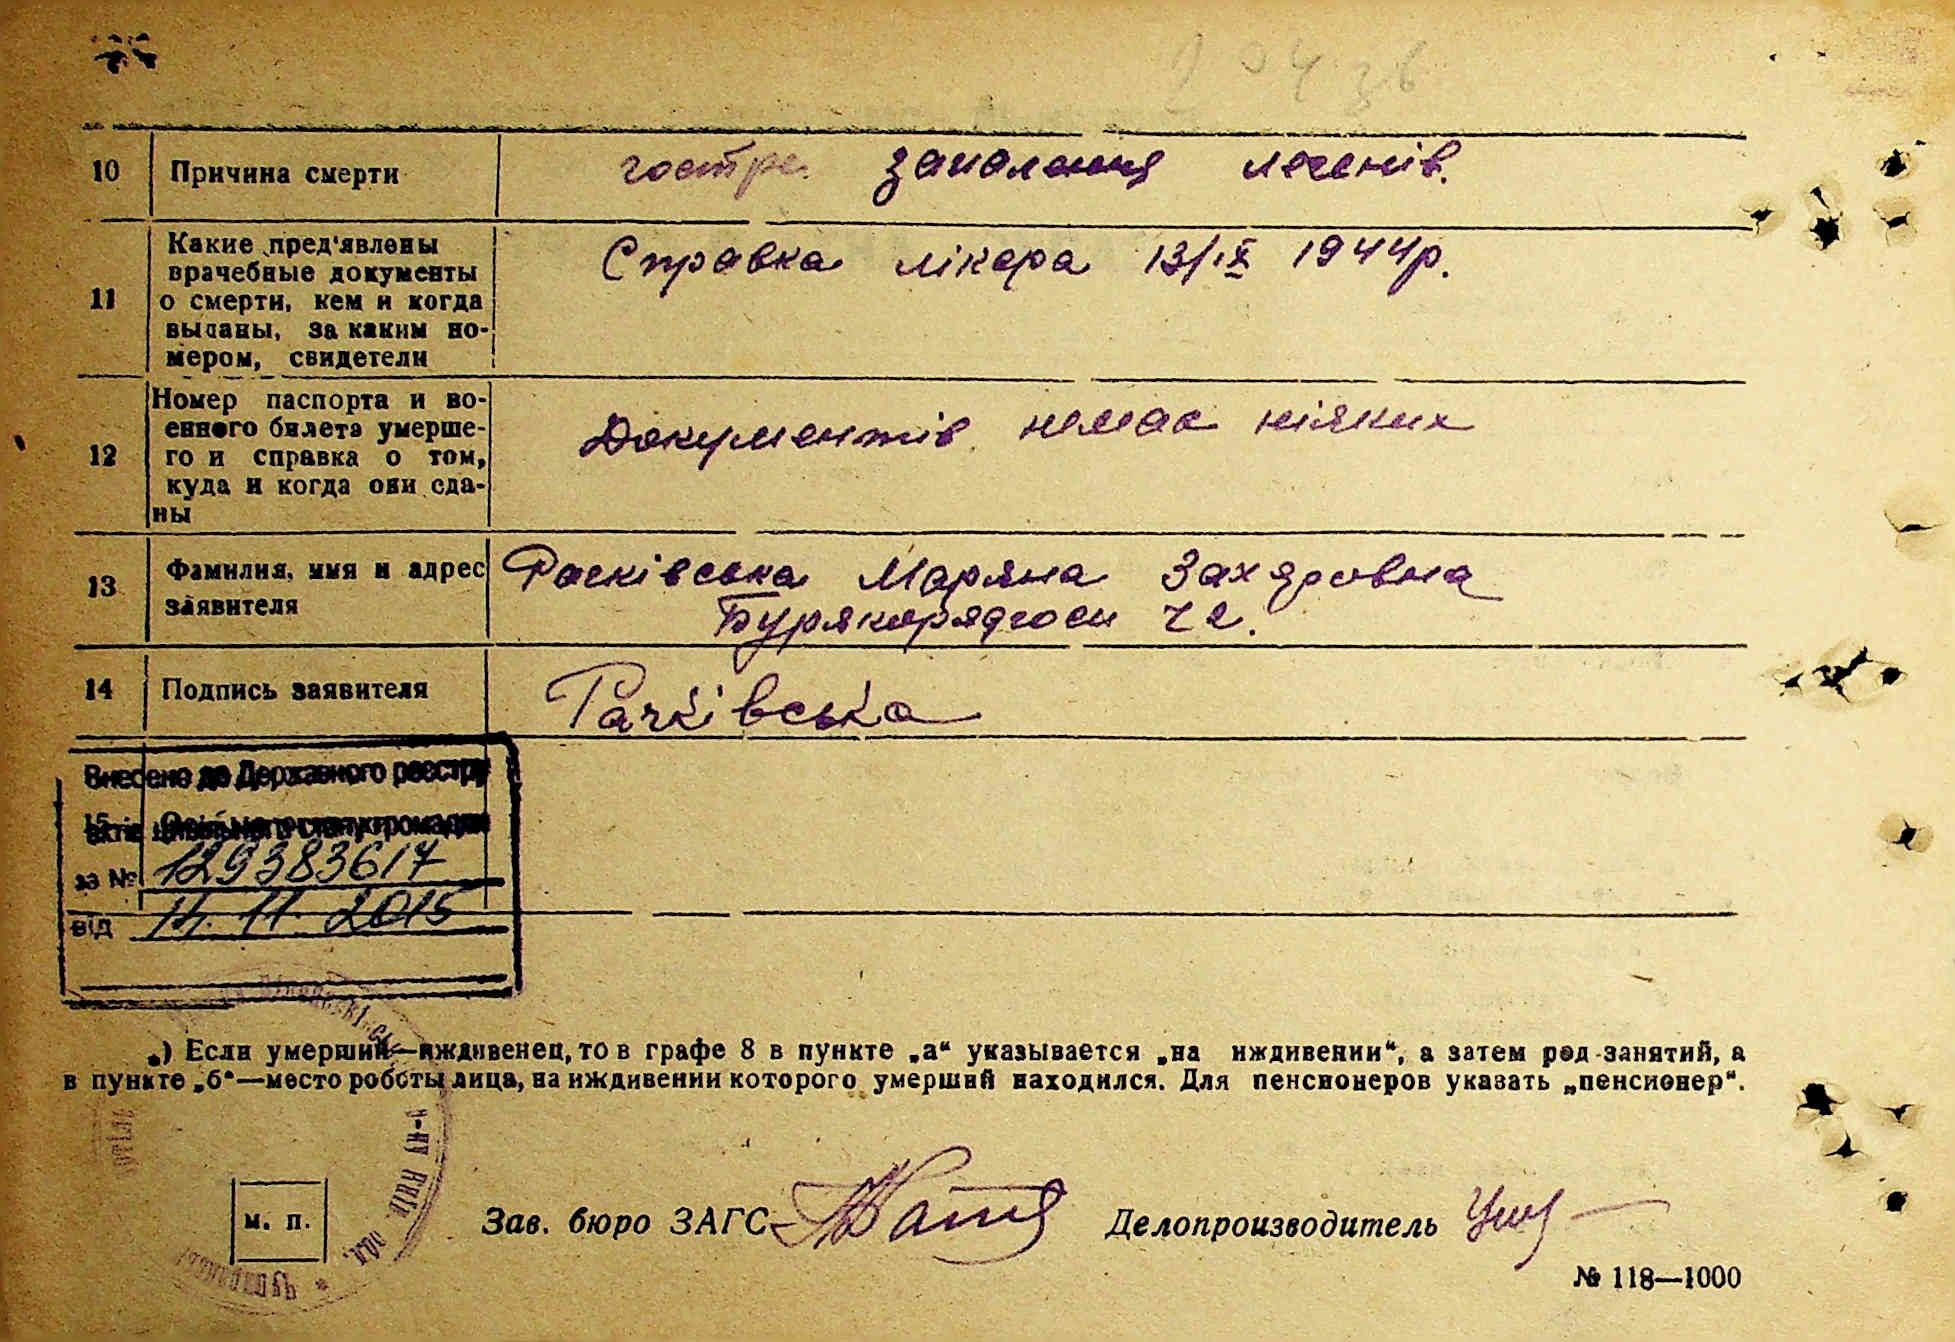 10 Причина смерти гостре запалення легенів.
11 Какие пред'явлены
врачебные документы
о смерти, кем и когда
выданы, за каким но-
мером, свидетели
Справка лікаря 13/IX 1944р.
12 Номер паспорта и во-
енного билета умерше-
го и справка о том,
куда и когда они сда-
ны
Документів немає ніяких
13 Фамилия, имя и адрес
заявителя
Рачківська Маряна Захаровна
14 Подпись заявителя Рачківська
Внесено до Державного реєстру
актів цивільного стану громадян
за № 129383617
від 14. 11. 2015
*) Если умерший—иждивенец, то в графе 8 в пункте „а“ указывается „на иждивении“, а затем род занятий, а
в пункте „б“—место роботы лица, на иждивении которого умерший находился. Для пенсионеров указать „пенсионер“.
м. п. Зав. бюро ЗАГС Делопроизводитель
№ 118—1000